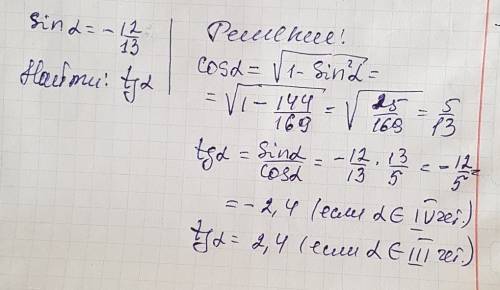 sinα = -12/13
Найти: tgα
Решение:
cosα = √(1 - sin²α) =
= √(1 - 144/169) = √(25/169) = 5/13
tgα = sinα/cosα = -12/13 · 13/5 = -12/5 =
= -2,4 (если α ∈ IV чет.)
tgα = 2,4 (если α ∈ III чет.)